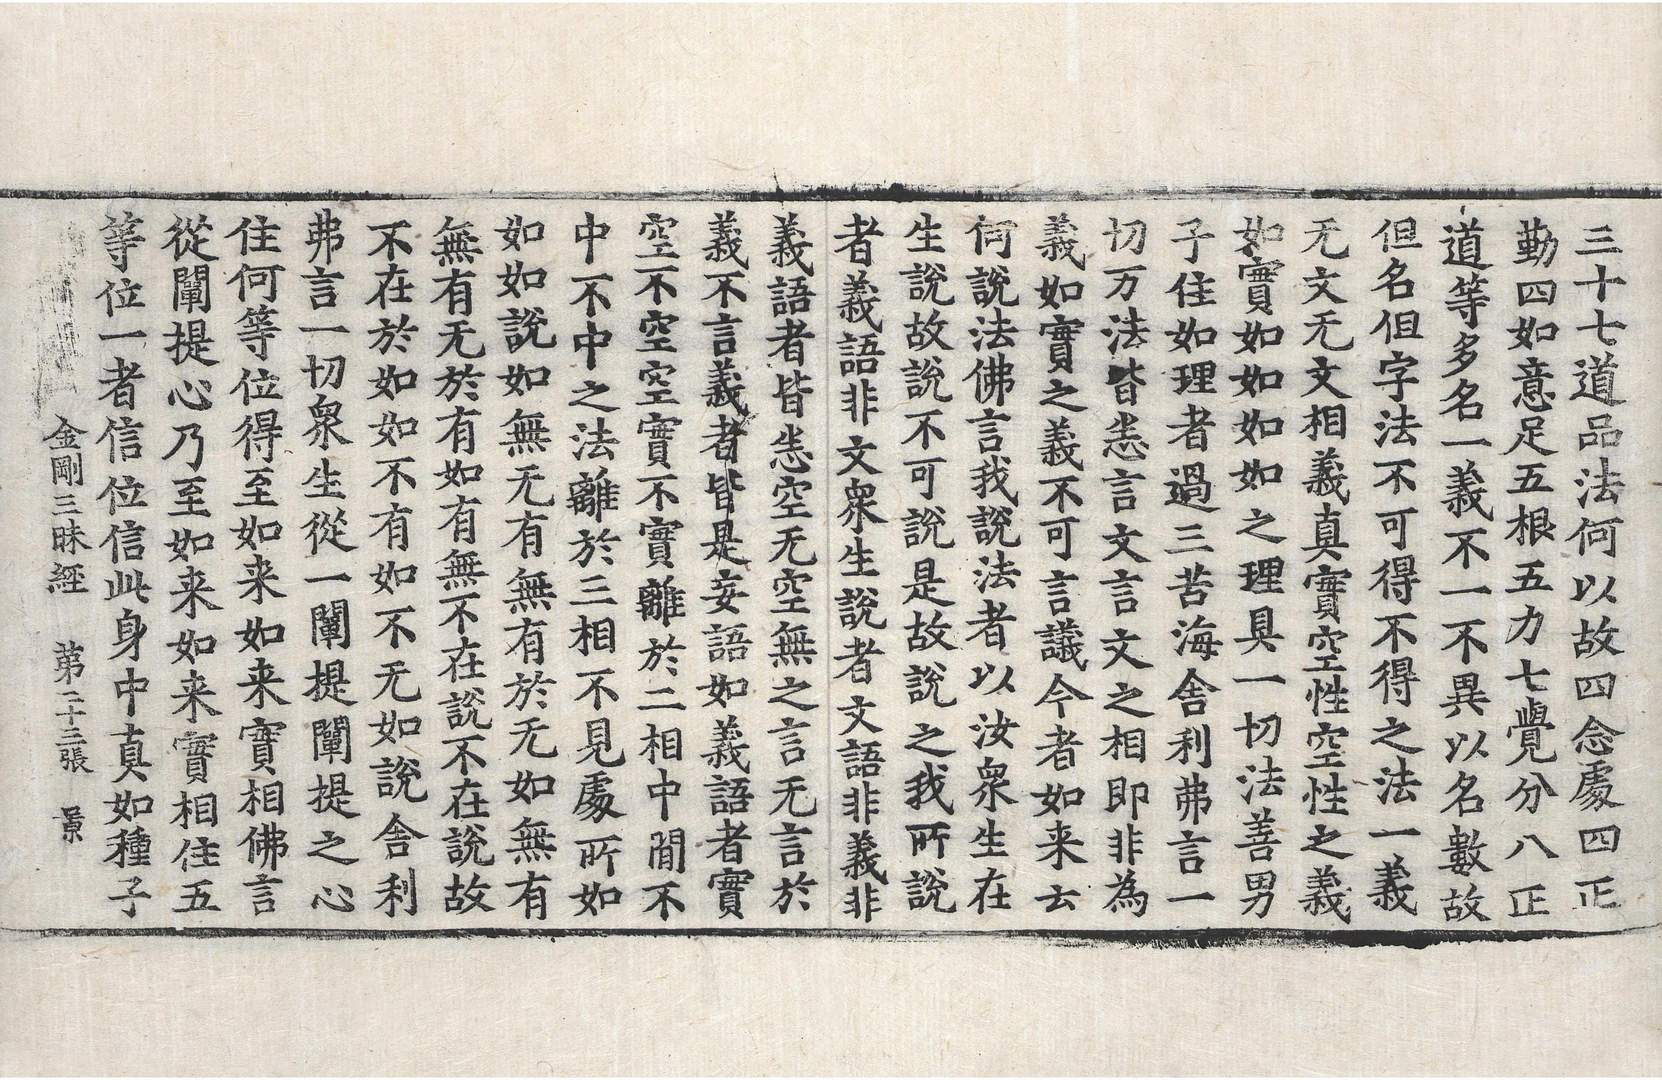 三十七道品法何以故四念處四正
勤四如意足五根五力七覺分八正
道等多名一義不一不異以名數故
但名但字法不可得不得之法一義
无文无文相義真實空性空性之義
如實如如如如之理具一切法善男
子住如理者過三苦海舍利弗言一
切万法皆悉言文言文之相即非為
義如實之義不可言議今者如来云
何說法佛言我說法者以汝衆生在
生說故說不可說是故說之我所說
者義語非文衆生說者文語非義非
義語者皆悉空无空無之言无言於
義不言義者皆是妄語如義語者實
空不空空實不實離於二相中間不
中不中之法離於三相不見處所如
如如說如無无有無有於无如無有
無有无於有如有無不在說不在說故
不在於如如不有如不无如說舍利
弗言一切衆生從一闡提闡提之心
住何等位得至如来如来實相佛言
從闡提心乃至如来如来實相住五
等位一者信位信此身中真如種子
金剛三昧經 第二十三張 景